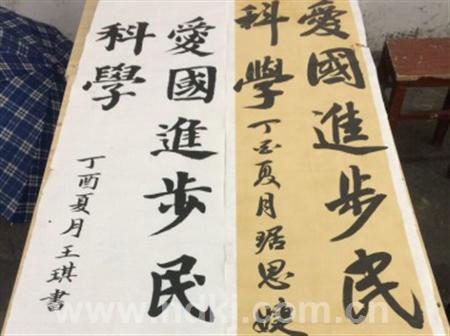 愛國進步民
科學丁酉夏月琚思
愛國進步民
科學
丁酉夏月王琪書